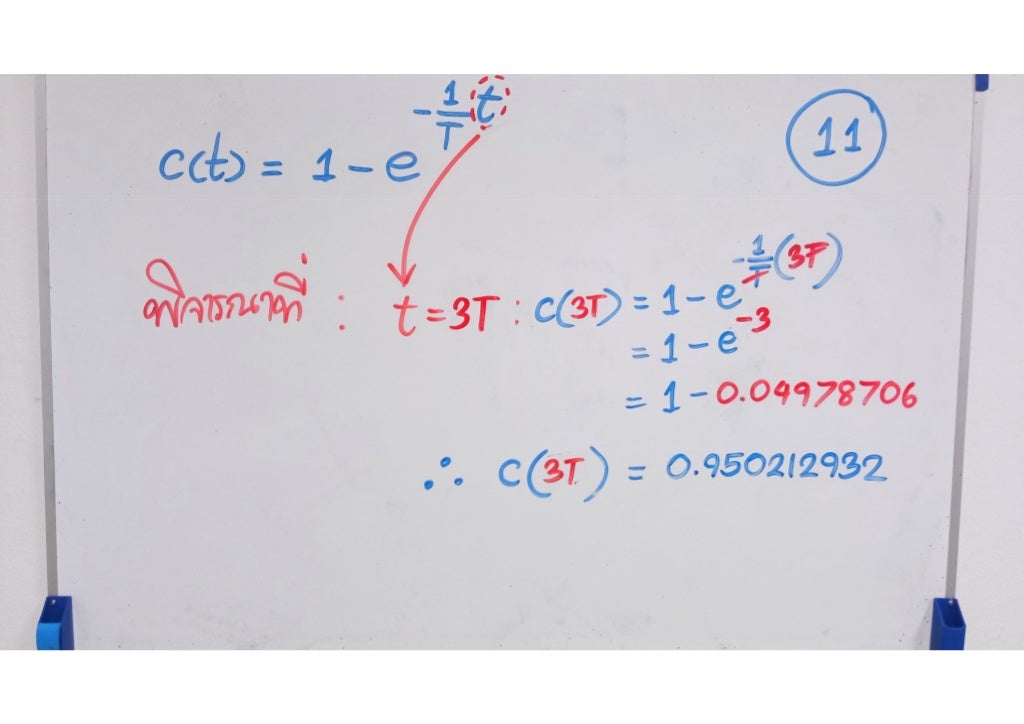 11
c(t) = 1 - e^{-\frac{1}{T}t}
พิจารณาที่ : t = 3T : c(3T) = 1 - e^{-\frac{1}{T}(3T)}
= 1 - e^{-3}
= 1 - 0.04978706
∴ c(3T) = 0.950212932